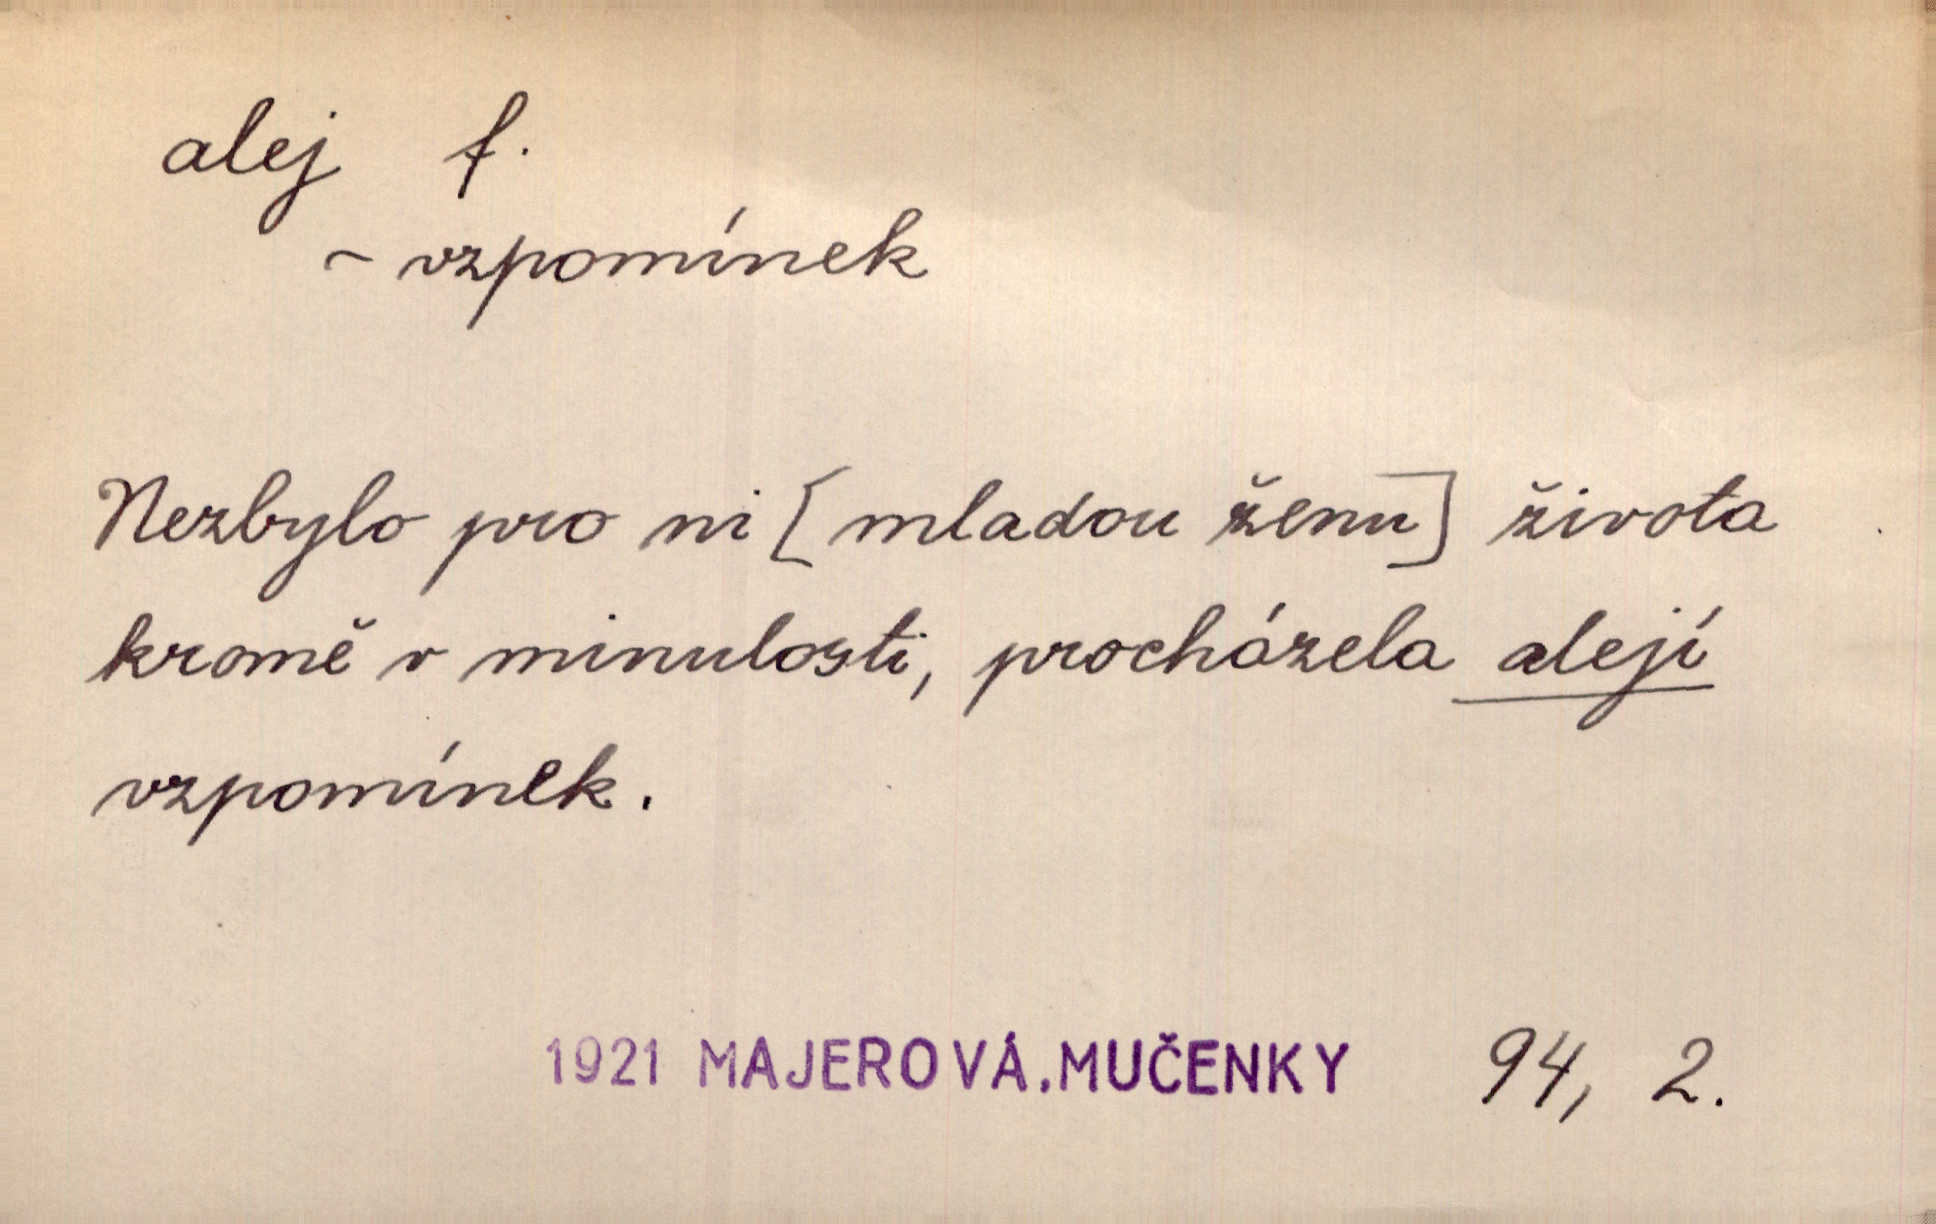 alej f.
~ vzpomínek
Nezbylo pro ni [mladou ženu] života
kromě v minulosti, procházela alejí
vzpomínek.
1921 MAJEROVÁ.MUČENKY 94, 2.